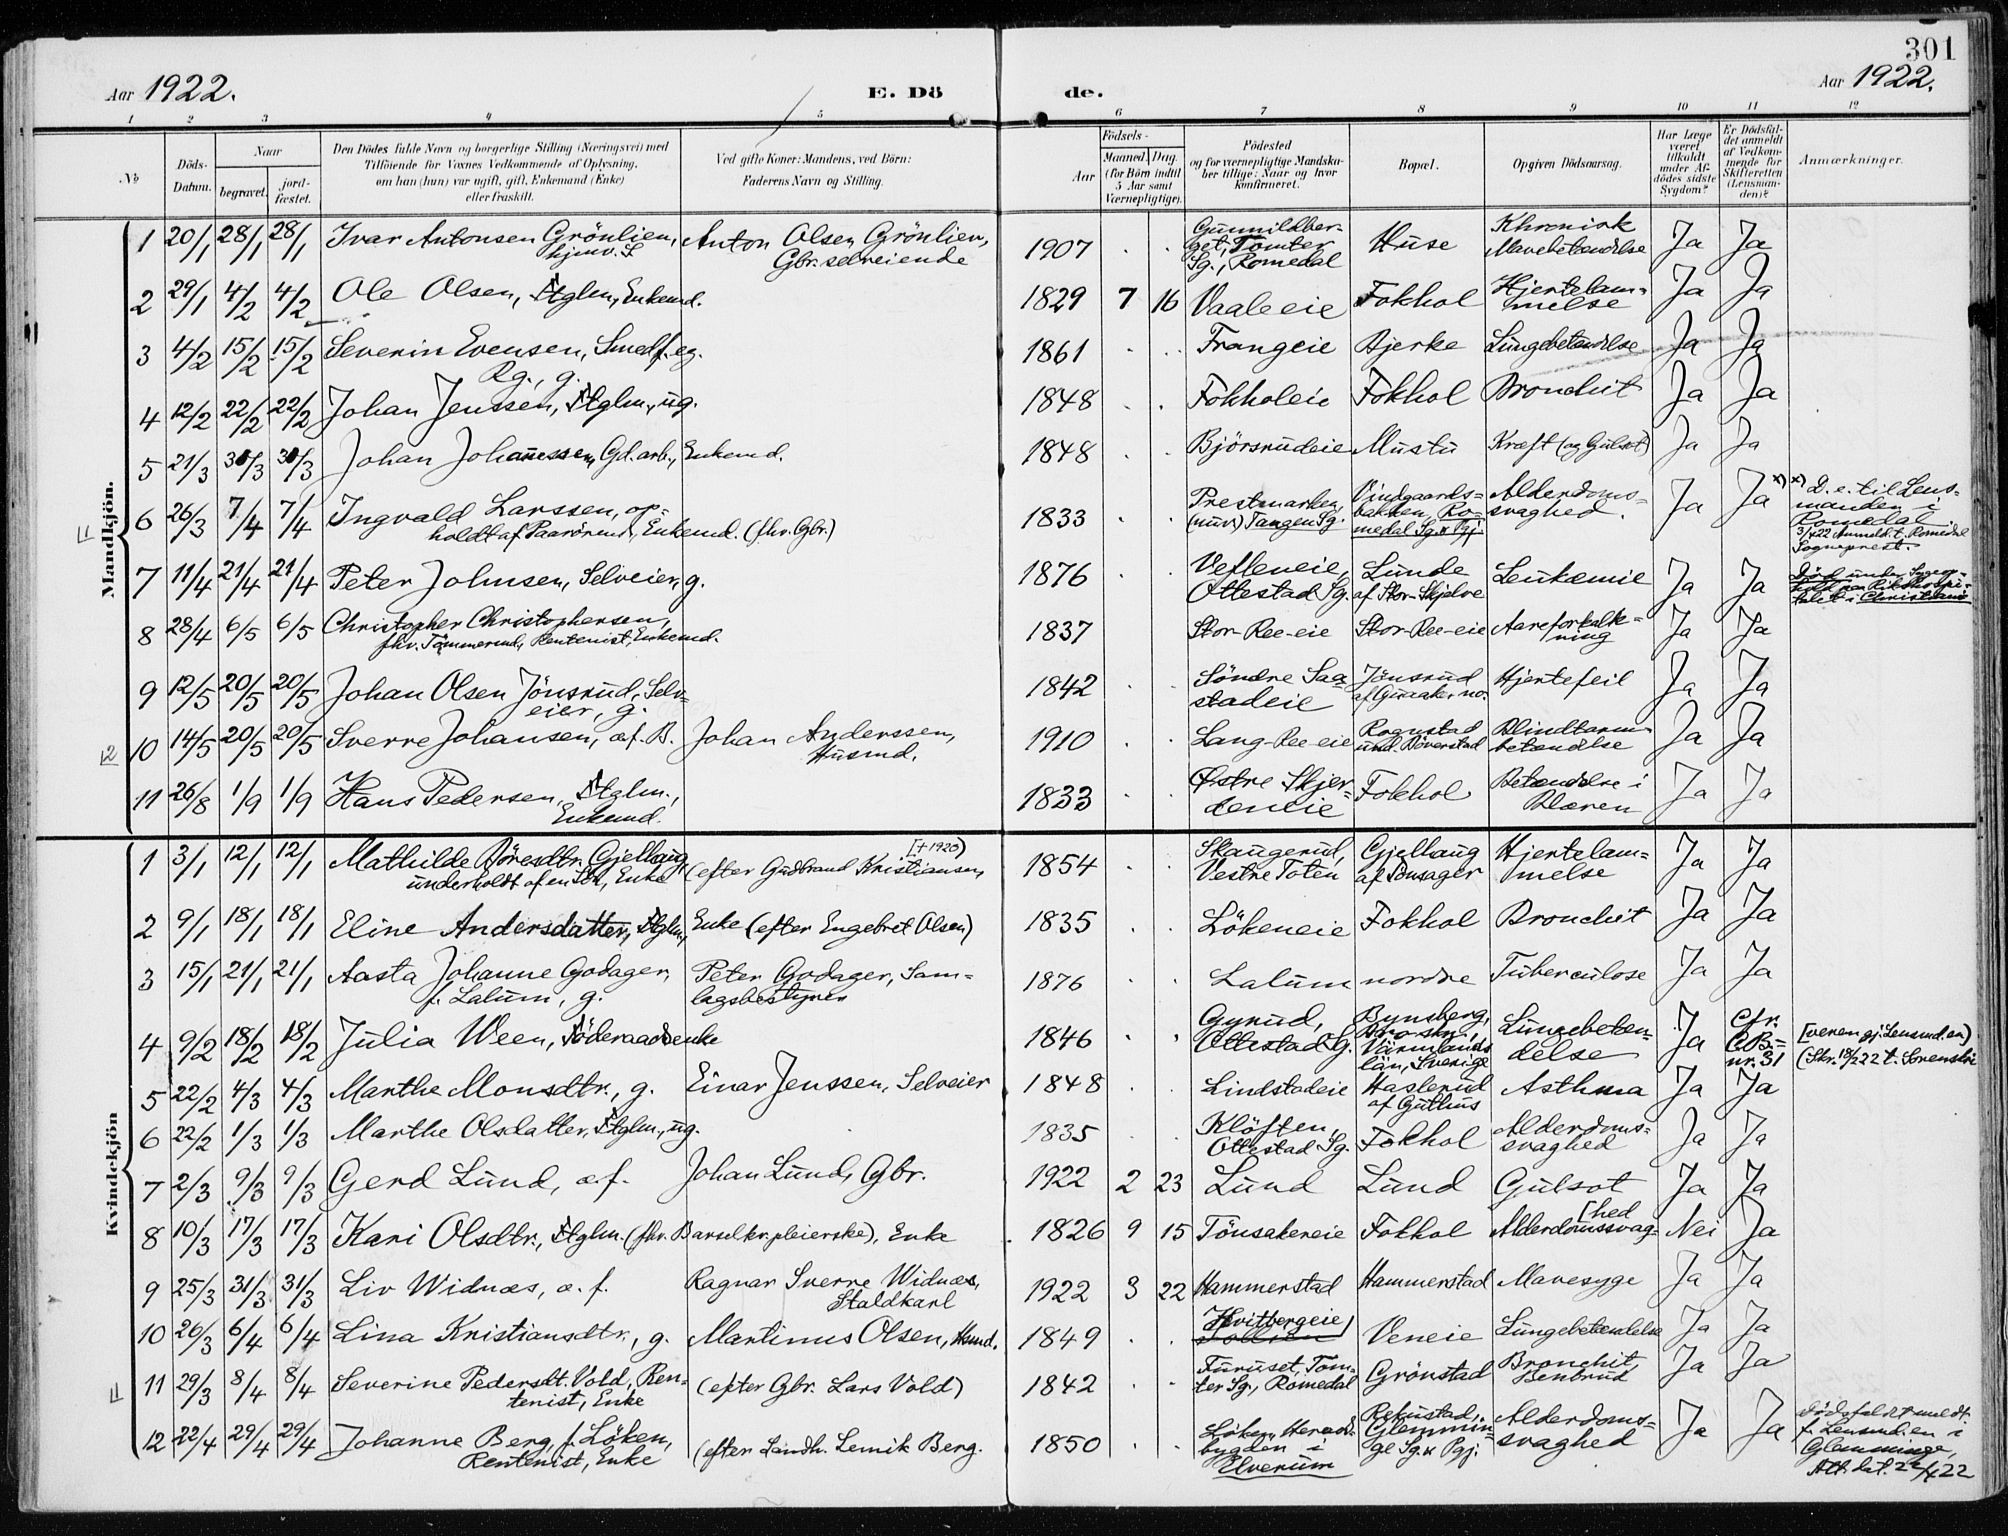 301
Aar 1922.
E. Dö de.
Aar 1922.
1 2 3 4 5 6 7 8 9 10 11 12
No
Döds-Datum.
Naar
begravet.
jord-fæstet.
Den Dödes fulde Navn og borgerlige Stilling (Næringsvei) med
Tilföiende for Voxnes Vedkommende af Oplysning,
om han (hun) var ugift, gift, Enkemand (Enke)
eller fraskilt.
Ved gifte Koner: Mandens, ved Börn:
Faderens Navn og Stilling.
Födsels-
Aar
Maaned. Dag.
(for Börn indtil
5 Aar samt
Værnepligtige).
Födested
og for værnepligtige Mandska-
ber tillige: Naar og hvor
konfirmeret.
Bopæl.
Opgiven Dödsaarsag.
Har Læge
været
tilkaldt
under Af-
dödes sidste
Sygdom?
Er Dödsfal-
det anmeldt
af Vedkom-
mende for
Skifteretten
(Lensman-
den)?
Anmærkninger.
Mandkjön.
1 20/1 28/1 28/1 Ivar Antonsen Grönlien, hjmv. S Anton Olsen Grönlien, Gbr. selveiende 1907 Gunnildberget, Tomter Sg., Romedal Huse Khronisk Mavebetændelse Ja Ja
2 29/1 4/2 4/2 Ole Olsen, Ftglm, Enkemd. 1829 7 16 Vaaleeie Fokhol Hjertelammelse Ja Ja
3 4/2 15/2 15/2 Severin Evensen, Smed, f. eg. Rg., g. 1861 Frangeie Bjerke Lungebetændelse Ja Ja
4 12/2 22/2 22/2 Johan Jenssen, Ftglm., ug. 1848 Fokholeie Fokhol Bronchit Ja Ja
5 21/3 30/3 30/3 Johan Johannessen, Gd. arb., Enkemd. 1848 Björsrudeie Mustu Kræft (og Gulsot) Ja Ja
6 26/3 7/4 7/4 Ingvald Larssen, opholdt af Paarörende, Enkemd. (fhv. Gbr.) 1833 Prestmarken (nuv.) Tangen Sg. Vindgaardsbakken, Romedal Sg. & Pgj. Alderdomssvaghed. Ja Ja x) x) D. e. til Lensmanden i Romedal 3/4 22 Anmeldt t. Romedal Sogneprest.
7 11/4 21/4 21/4 Peter Johnsen, Selveier, g. 1876 Vefleneie, Ottestad Sg. Lunde af Stor-Skjelve Leukæmie Ja Ja Död under Sygeophold paa Rikshospitalet i Christiania
8 28/4 6/5 6/5 Christopher Christophersen, fhv. Tömmermd, Rentenist, Enkemd. 1837 Stor-Ree-eie Stor-Ree-eie Aareforkalkning Ja Ja
9 12/5 20/5 20/5 Johan Olsen Jönsrud, Selveier, g. 1842 Söndre Saastadeie Jönsrud af Guaaker no. Hjertefeil Ja Ja
10 14/5 20/5 20/5 Sverre Johansen, æf. B. Johan Anderssen, Husmd. 1910 Lang-Ree-eie Rognstad und. Böverstad Blindtarmbetændelse Ja Ja
11 26/8 1/9 1/9 Hans Pedersen, Ftglm., Enkemd. 1833 Østre Skjerdeneie Fokhol Betændelse i Blæren Ja Ja
Kvindekjön
1 3/1 12/1 12/1 Mathilde Böresdtr. Gjelhaug, underholdt af en Sön, Enke (efter Gudbrand Kristiansen, [+ 1920) 1854 Skaugerud, Vestre Toten Gjelhaug af Tönsager Hjertelammelse Ja Ja
2 9/1 18/1 18/1 Eline Andersdatter, Ftglm, Enke (efter Engebret Olsen) 1835 Lökeneie Fokhol Bronchit Ja Ja
3 15/1 21/1 21/1 Aasta Johanne Godager, f. Lalum, g. Peter Godager, Samlagsbestyrer 1876 Lalum nordre Tuberculose Ja Ja
4 9/2 18/2 18/2 Julia Ween, Föderaadsenke 1846 Gyrud, Ottestad Sg. Bynsberg, Värmlands län, Sverige Lungebetændelse Ja Cfr. C.B. nr. 31 (Skr. 18/2 22 t. Sorenskr.
5 22/2 4/3 4/3 Marthe Monsdtr., g. Einar Jenssen, Selveier 1848 Lindstadeie Haslerud af Guthus Asthma Ja Ja
6 22/2 1/3 1/3 Marthe Olsdatter, Ftglm., ug. 1835 Klöften, Ottestad Sg. Fokhol Alderdomssvaghed Ja Ja
7 2/3 9/3 9/3 Gerd Lund, æf. Johan Lund, Gbr. 1922 2 23 Lund Lund Gulsot Ja Ja
8 10/3 17/3 17/3 Kari Olsdtr., Ftglm. (fhv. Barselkv.pleierske), Enke 1826 9 15 Tönsakereie Fokhol Alderdomssvag-[hed Nei Ja
9 25/3 31/3 31/3 Liv Widnæs, æ. f. Ragnar Sverre Widnæs, Staldkarl 1922 3 22 Hammerstad Hammerstad Mavesyge Ja Ja
10 26/3 6/4 6/4 Lina Kristiansdtr., g. Martinus Olsen, Hsmd. 1849 Hvitbergeie Veneie Lungebetændelse Ja Ja
11 29/3 8/4 8/4 Severine Pedersdt. Vold, Rentenist, Enke (efter Gbr. Lars Vold) 1842 Furuset, Tomter Sg., Romedal Grönstad Bronchit, Benbrud Ja Ja
12 22/4 29/4 29/4 Johanne Berg, f. Löken, Rentenist, Enke (efter Landh. Lemik Berg. 1850 Löken, Heradsbygden i Elverum Rekustad, Glemminge Sg. & Pgj. Alderdomssvaghed Ja Ja Dödsfaldet meldt f. Lensmd. en i Glemminge, Att. dat. 22/4 22